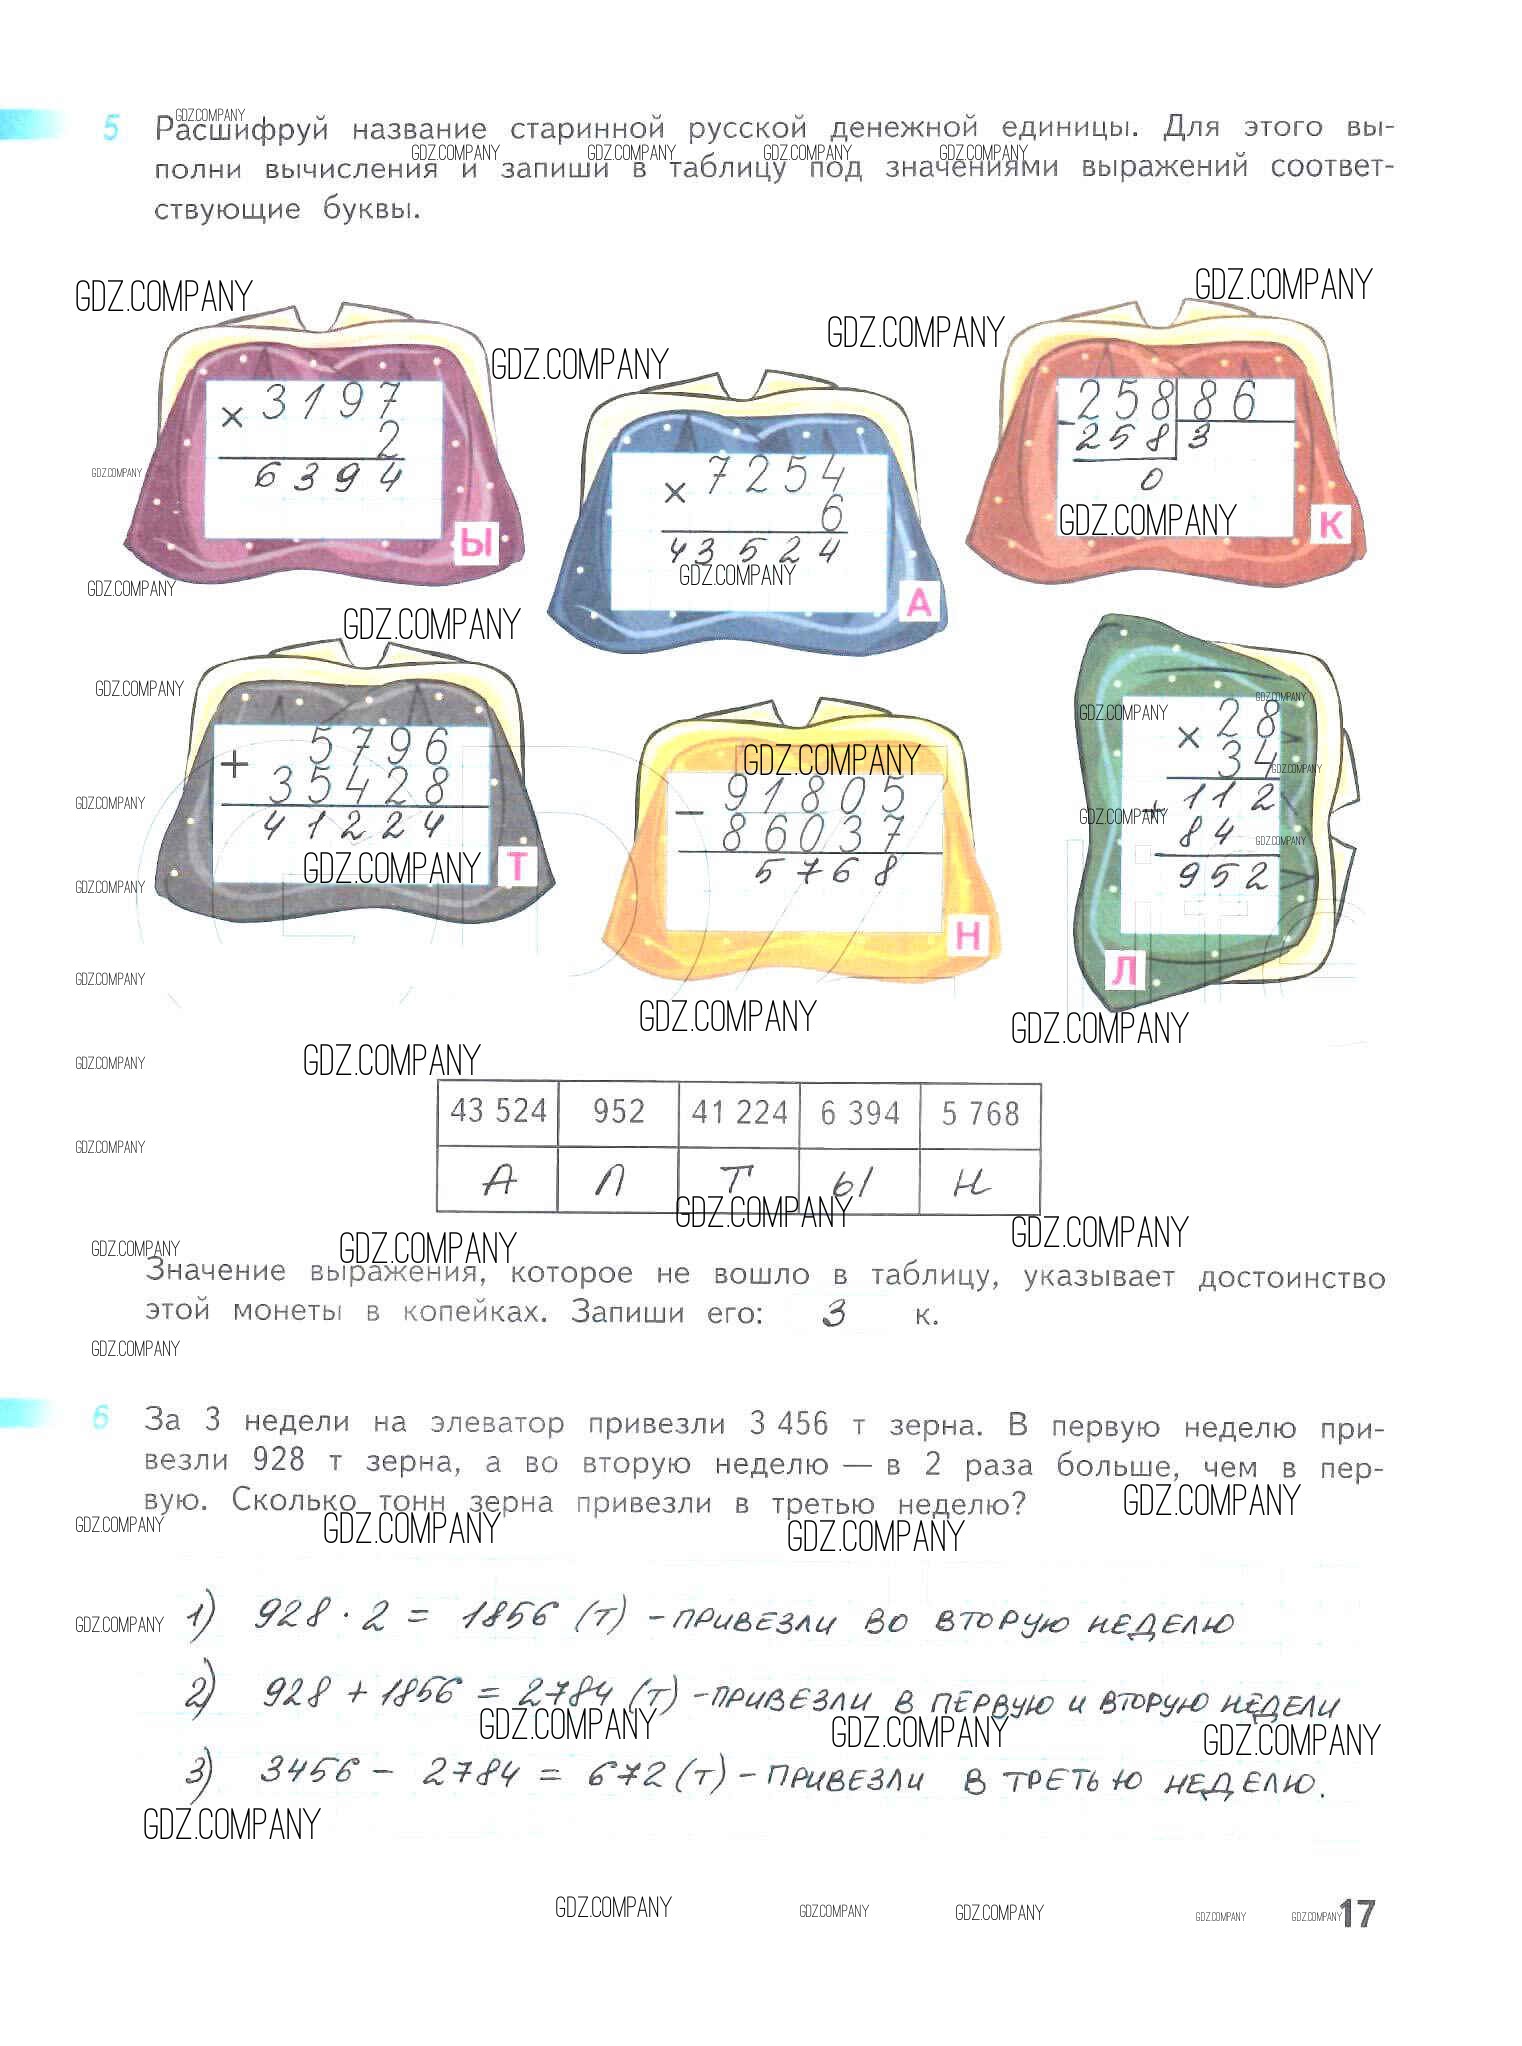 5 Расшифруй название старинной русской денежной единицы. Для этого вы-
полни вычисления и запиши в таблицу под значениями выражений соответ-
ствующие буквы.
GDZ.COMPANY
× 3197
2
6394
Ы
× 7254
6
43524
А
- 258 86
258 3
0
К
+ 5796
35428
41224
Т
- 91805
86037
5768
Н
× 28
34
+ 112
84
952
Л
43 524 952 41 224 6 394 5 768
А Л Т Ы Н
Значение выражения, которое не вошло в таблицу, указывает достоинство
этой монеты в копейках. Запиши его: 3 к.
6 За 3 недели на элеватор привезли 3 456 т зерна. В первую неделю при-
везли 928 т зерна, а во вторую неделю — в 2 раза больше, чем в пер-
вую. Сколько тонн зерна привезли в третью неделю?
1) 928 · 2 = 1856 (т) - привезли во вторую неделю
2) 928 + 1856 = 2784 (т) - привезли в первую и вторую недели
3) 3456 - 2784 = 672 (т) - привезли в третью неделю.
17